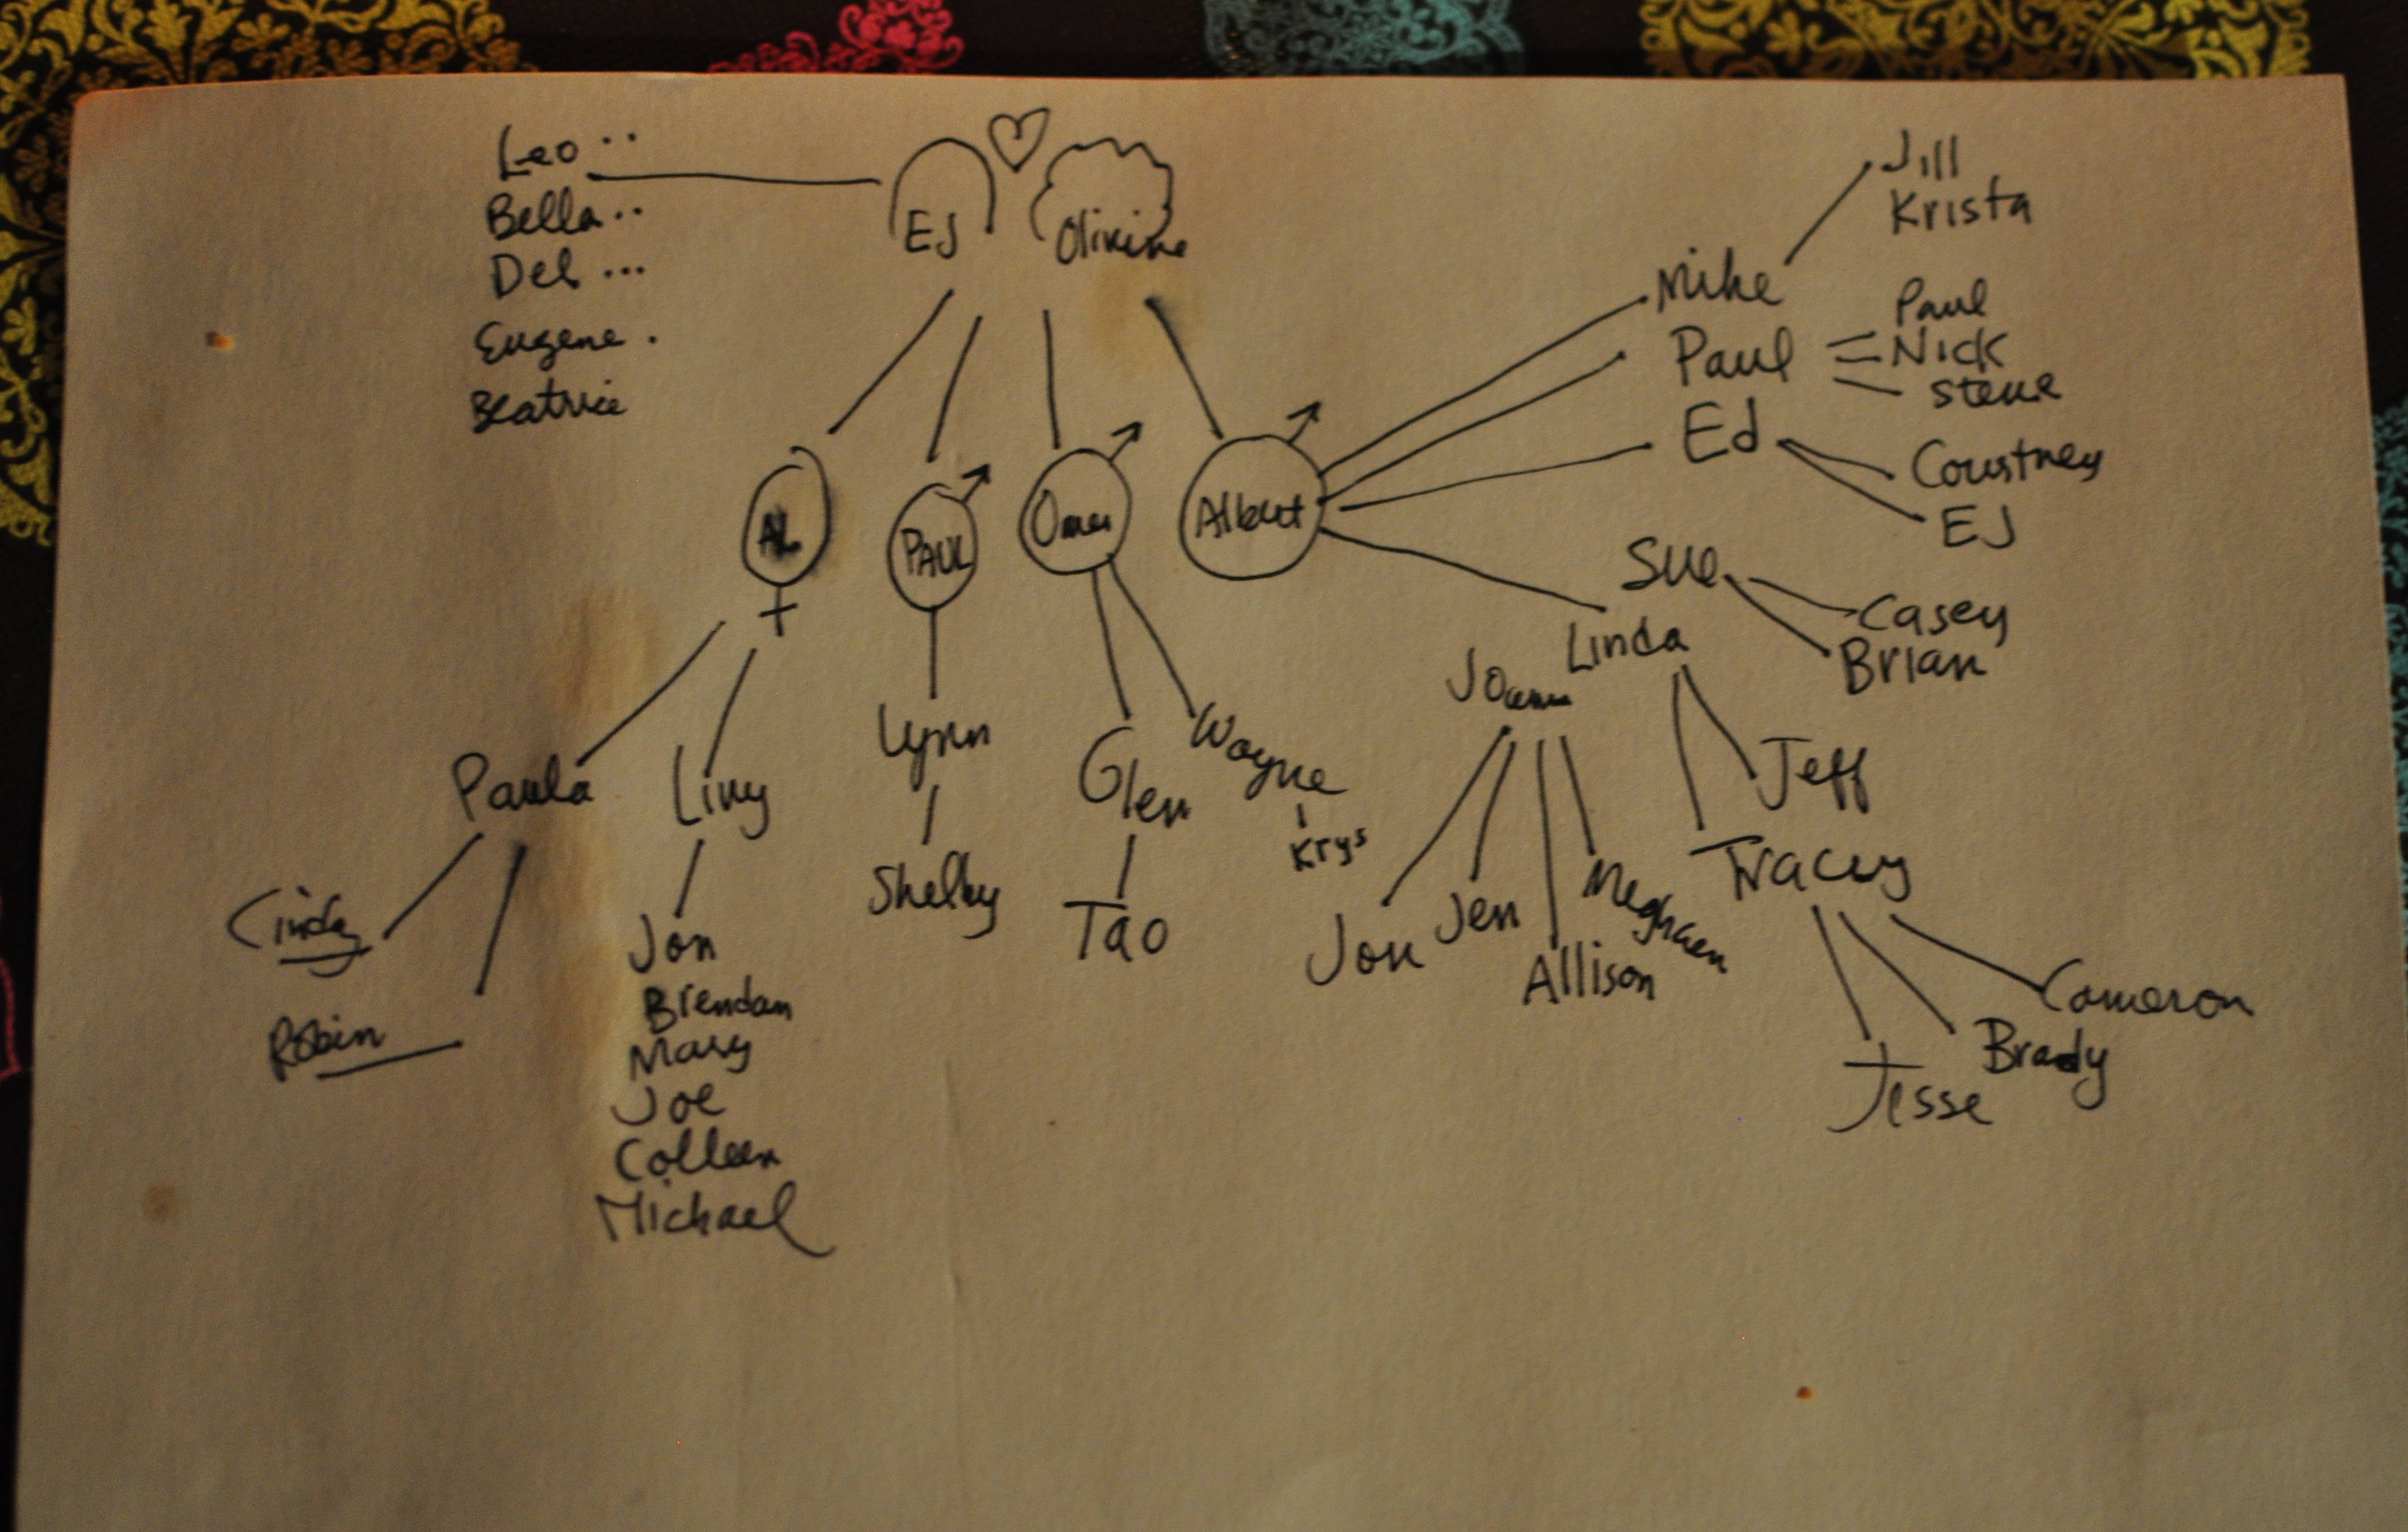 Leo ..
Bella ..
Del ...
Eugene .
Beatrice
EJ
Olivine
AL
PAUL
Omer
Albert
Mike
Jill
Krista
Paul
Paul
Nick
Steve
Ed
Courtney
EJ
Sue
Casey
Brian
Linda
Joann
Jeff
Tracey
Cameron
Brady
Jesse
Jon
Jen
Allison
Meghaen
Paula
Cindy
Robin
Livy
Jon
Brendan
Mary
Joe
Colleen
Michael
Lynn
Shelby
Glen
Tao
Wayne
Krys